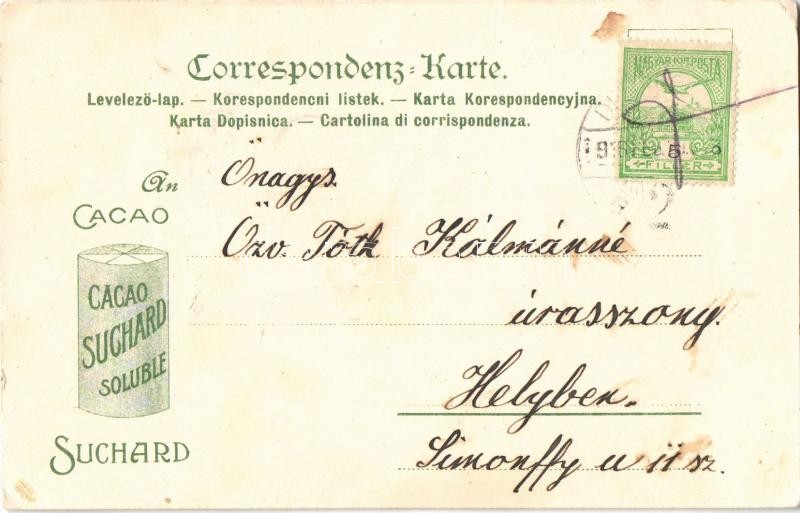 Correspondenz-Karte.
Levelező-lap. — Korespondencni listek. — Karta Korespondencyjna.
Karta Dopisnica. — Cartolina di corrispondenza.
MAGYAR KIR. POSTA
FILLÉR
An
Önagys.
Özv. Tóth Kálmánné
úrasszony.
Helyben.
Simonffy u 11 sz.
CACAO
CACAO
SUCHARD
SOLUBLE
SUCHARD